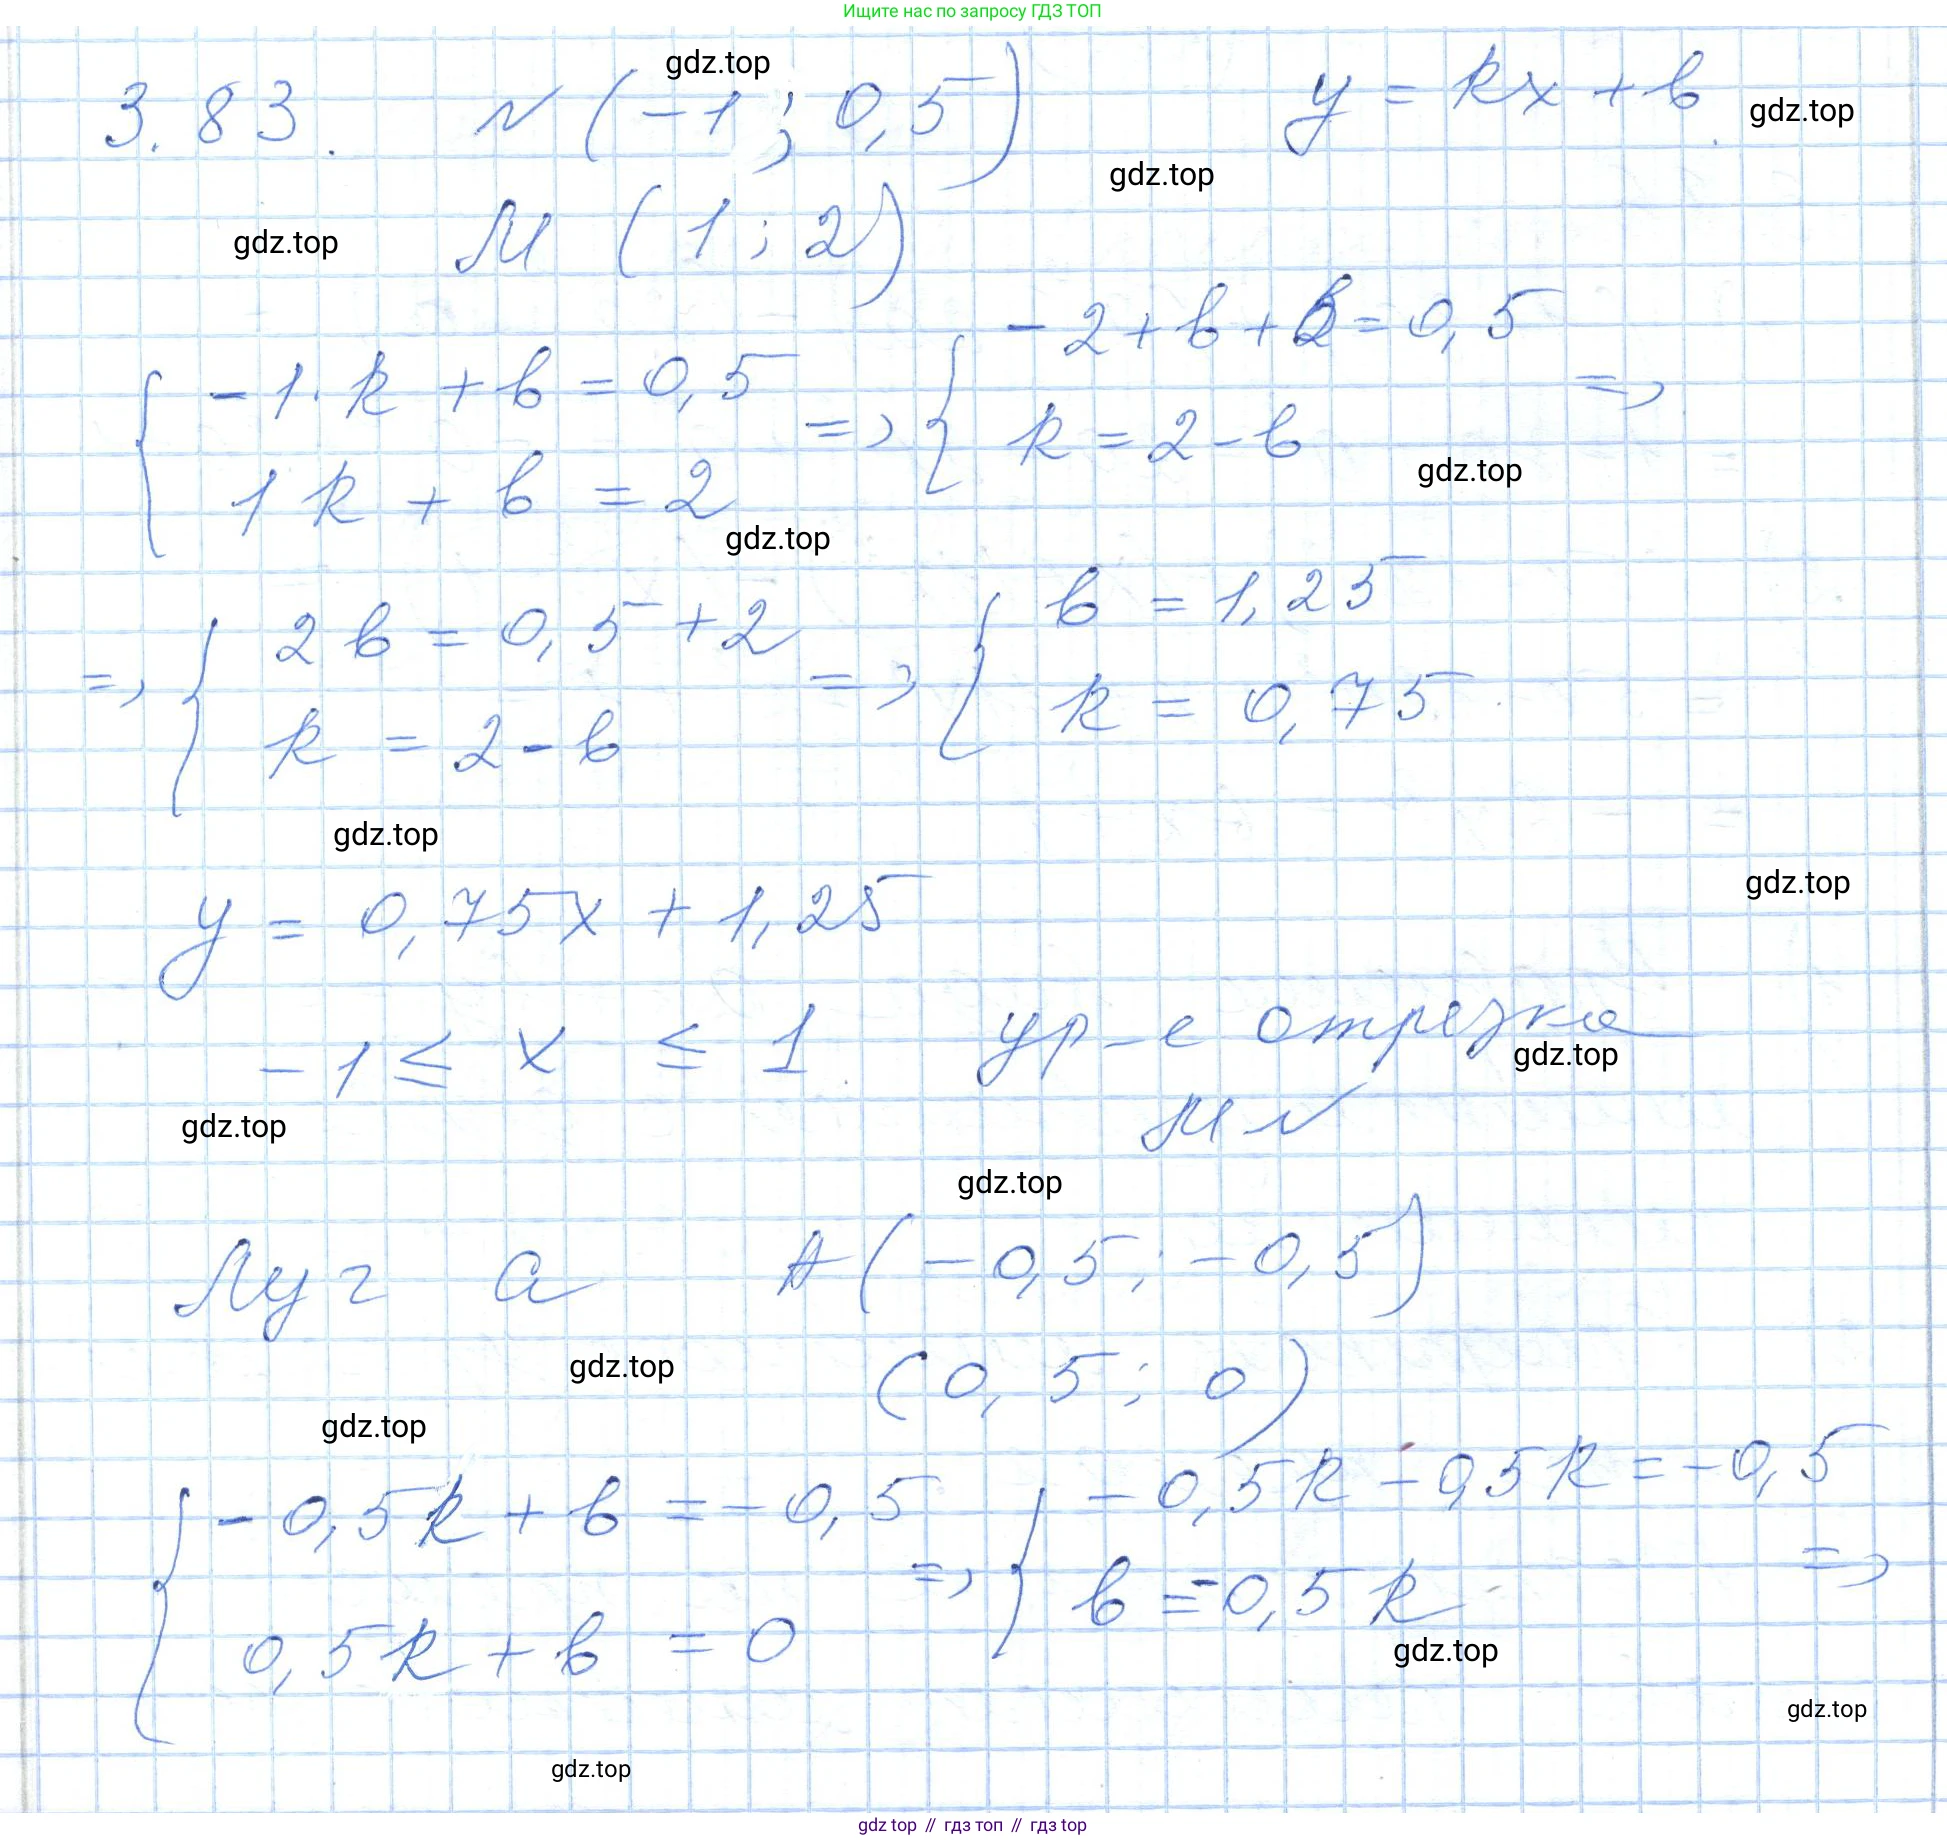 Ищите нас по запросу ГДЗ ТОП
3.83. N (-1; 0,5) y = kx + b
gdz.top
gdz.top
gdz.top
M (1; 2)
gdz.top
{ -1·k + b = 0,5 => { -2 + b + b = 0,5 =>
1k + b = 2 k = 2 - b
gdz.top
gdz.top
=> { 2b = 0,5 + 2 => { b = 1,25
k = 2 - b k = 0,75
gdz.top
gdz.top
y = 0,75x + 1,25
-1 ≤ x ≤ 1. ур-е отрезка
gdz.top
MN
gdz.top
gdz.top
Луч a A (-0,5; -0,5)
gdz.top
(0,5; 0)
gdz.top
{ -0,5k + b = -0,5 => { -0,5k - 0,5k = -0,5 =>
0,5k + b = 0 b = -0,5k
gdz.top
gdz.top
gdz.top
gdz top // гдз топ // гдз top